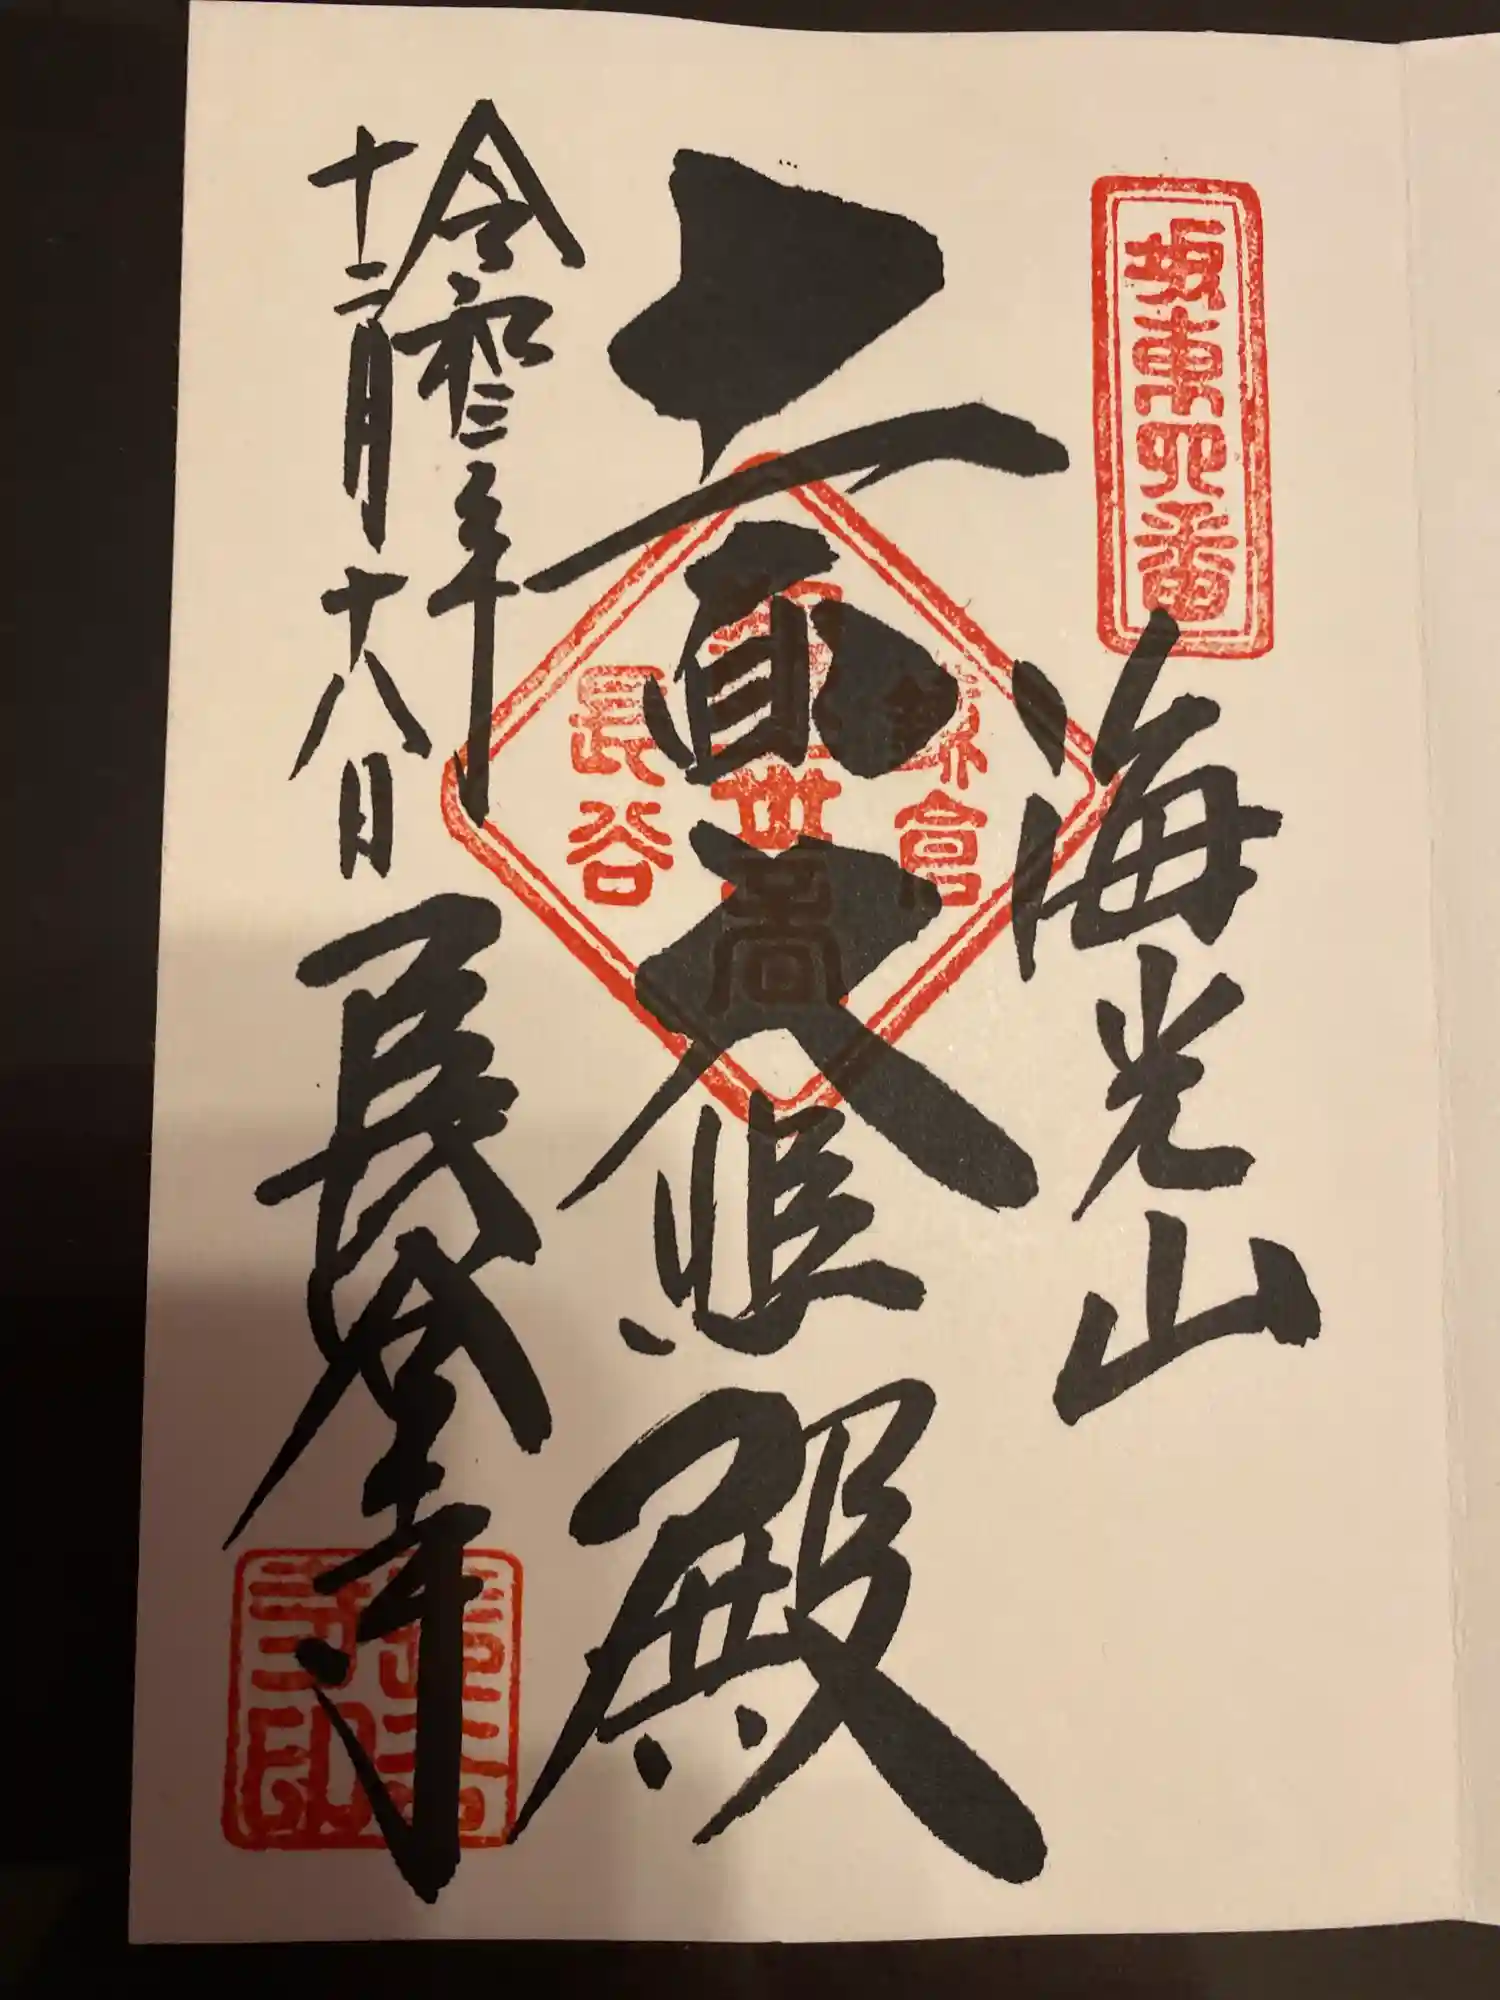 坂東四番
海光山
十一面大悲殿
鎌倉
世音
長谷
令和三年
十二月十八日
長谷寺